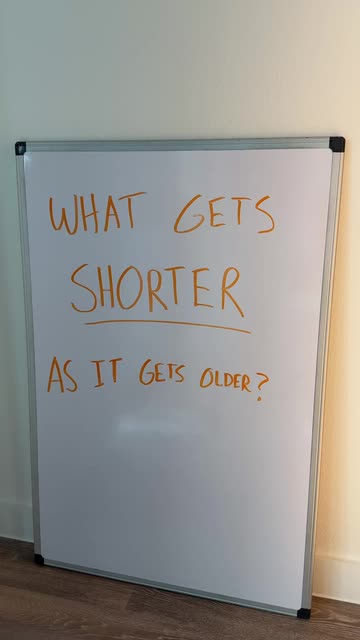 WHAT GETS
SHORTER
AS IT GETS OLDER?